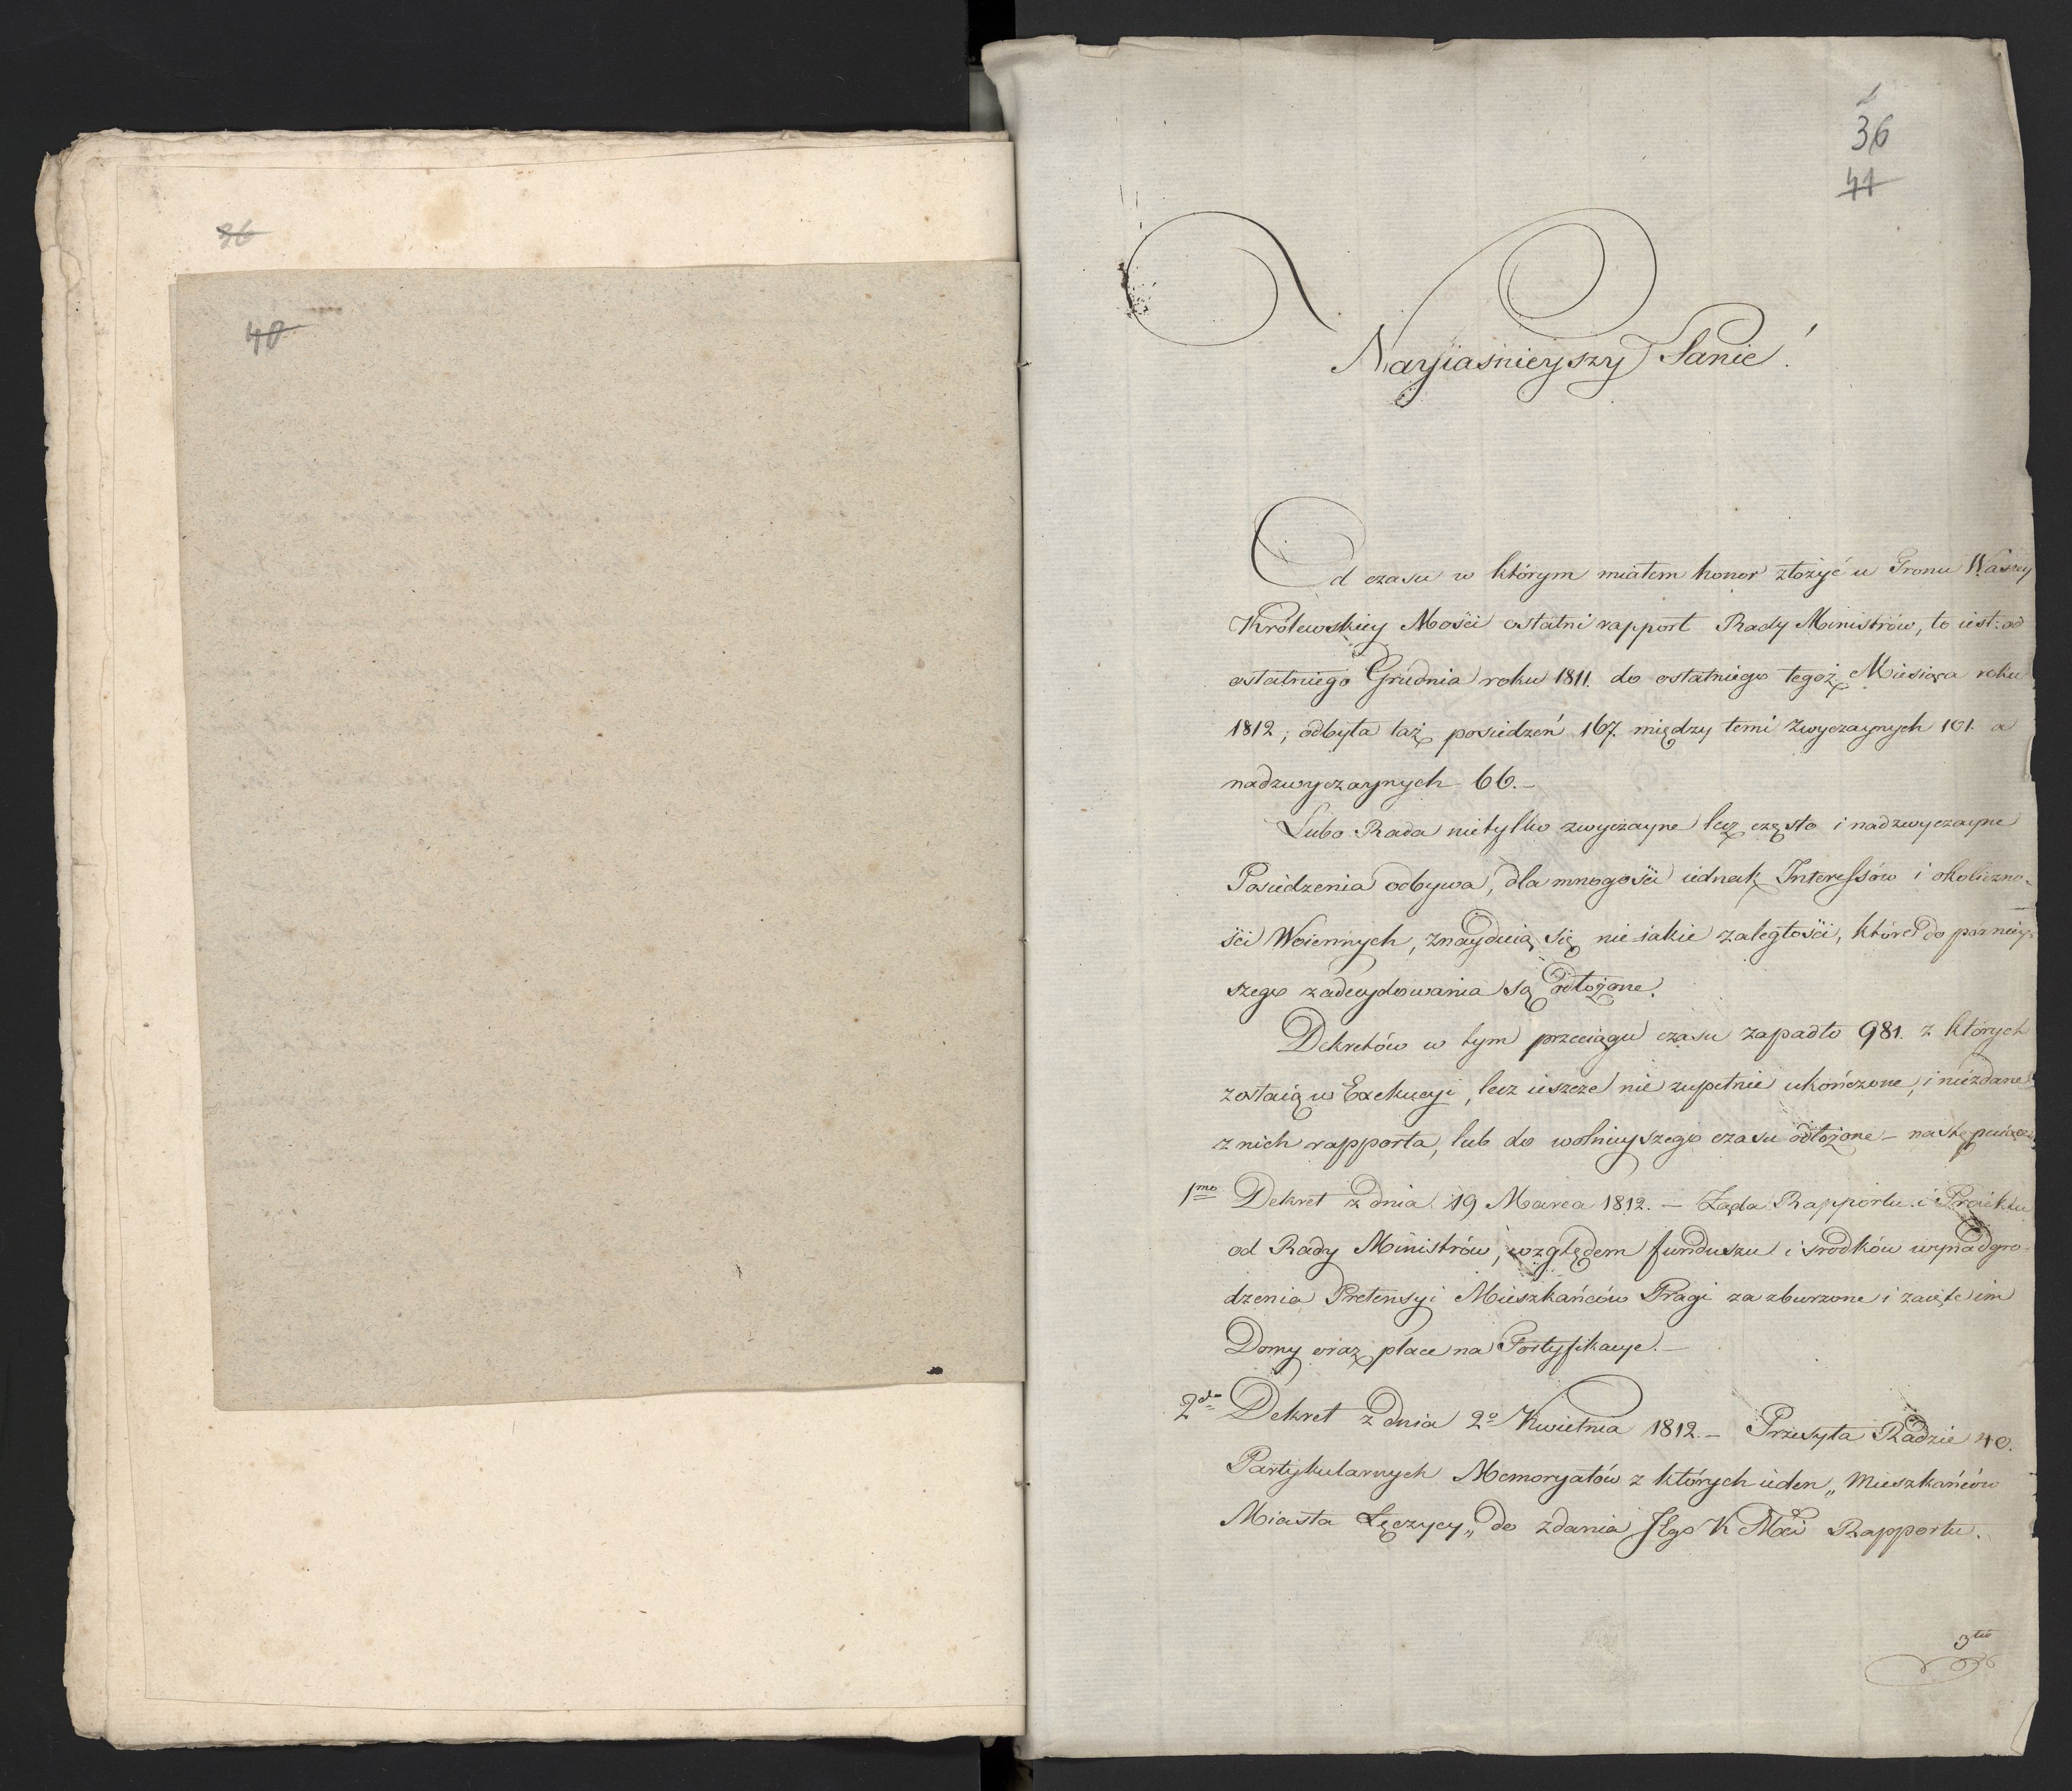 36
40
36
41
Nayiaśnieyszy Panie!
Od czasu w którym miałem honor złożyć u Tronu Waszey
Królewskiey Mości ostatni rapport Rady Ministrów, to iest: od
ostatniego Grudnia roku 1811. do ostatniego tegoż Miesiąca roku
1812; odbyła taż posiedzeń 167. między temi zwyczaynych 101. a
nadzwyczaynych 66.–
Lubo Rada nietylko zwyczayne lecz często i nadzwyczayne
Posiedzenia odbywa, dla mnogości iednak Interessów i okoliczno-
ści Woiennych, znayduią się nieiakie zaległości, które do pozniey-
szego zadecydowania są odłożone.
Dekretów w tym przeciągu czasu zapadło 981. z których
zostaią w Exekucyi, lecz ieszcze nie zupełnie ukończone, i niezdane
z nich rapporta, lub do wolnieyszego czasu odłożone – następuiące
1mo Dekret z dnia 19 Marca 1812. – Żąda Rapportu i Proiektu
od Rady Ministrów, względem funduszu i srodków wynadgro-
dzenia Pretensyi Mieszkańców Pragi za zburzone i zaięte im
Domy oraz place na Fortyfikacye.–
2do Dekret z dnia 2o Kwietnia 1812.– Przesyła Radzie 40.
Partykularnych Memoryałów z których ieden „Mieszkańców
Miasta Łęczycy„ do zdania Jego K Mci Rapportu.
3tio